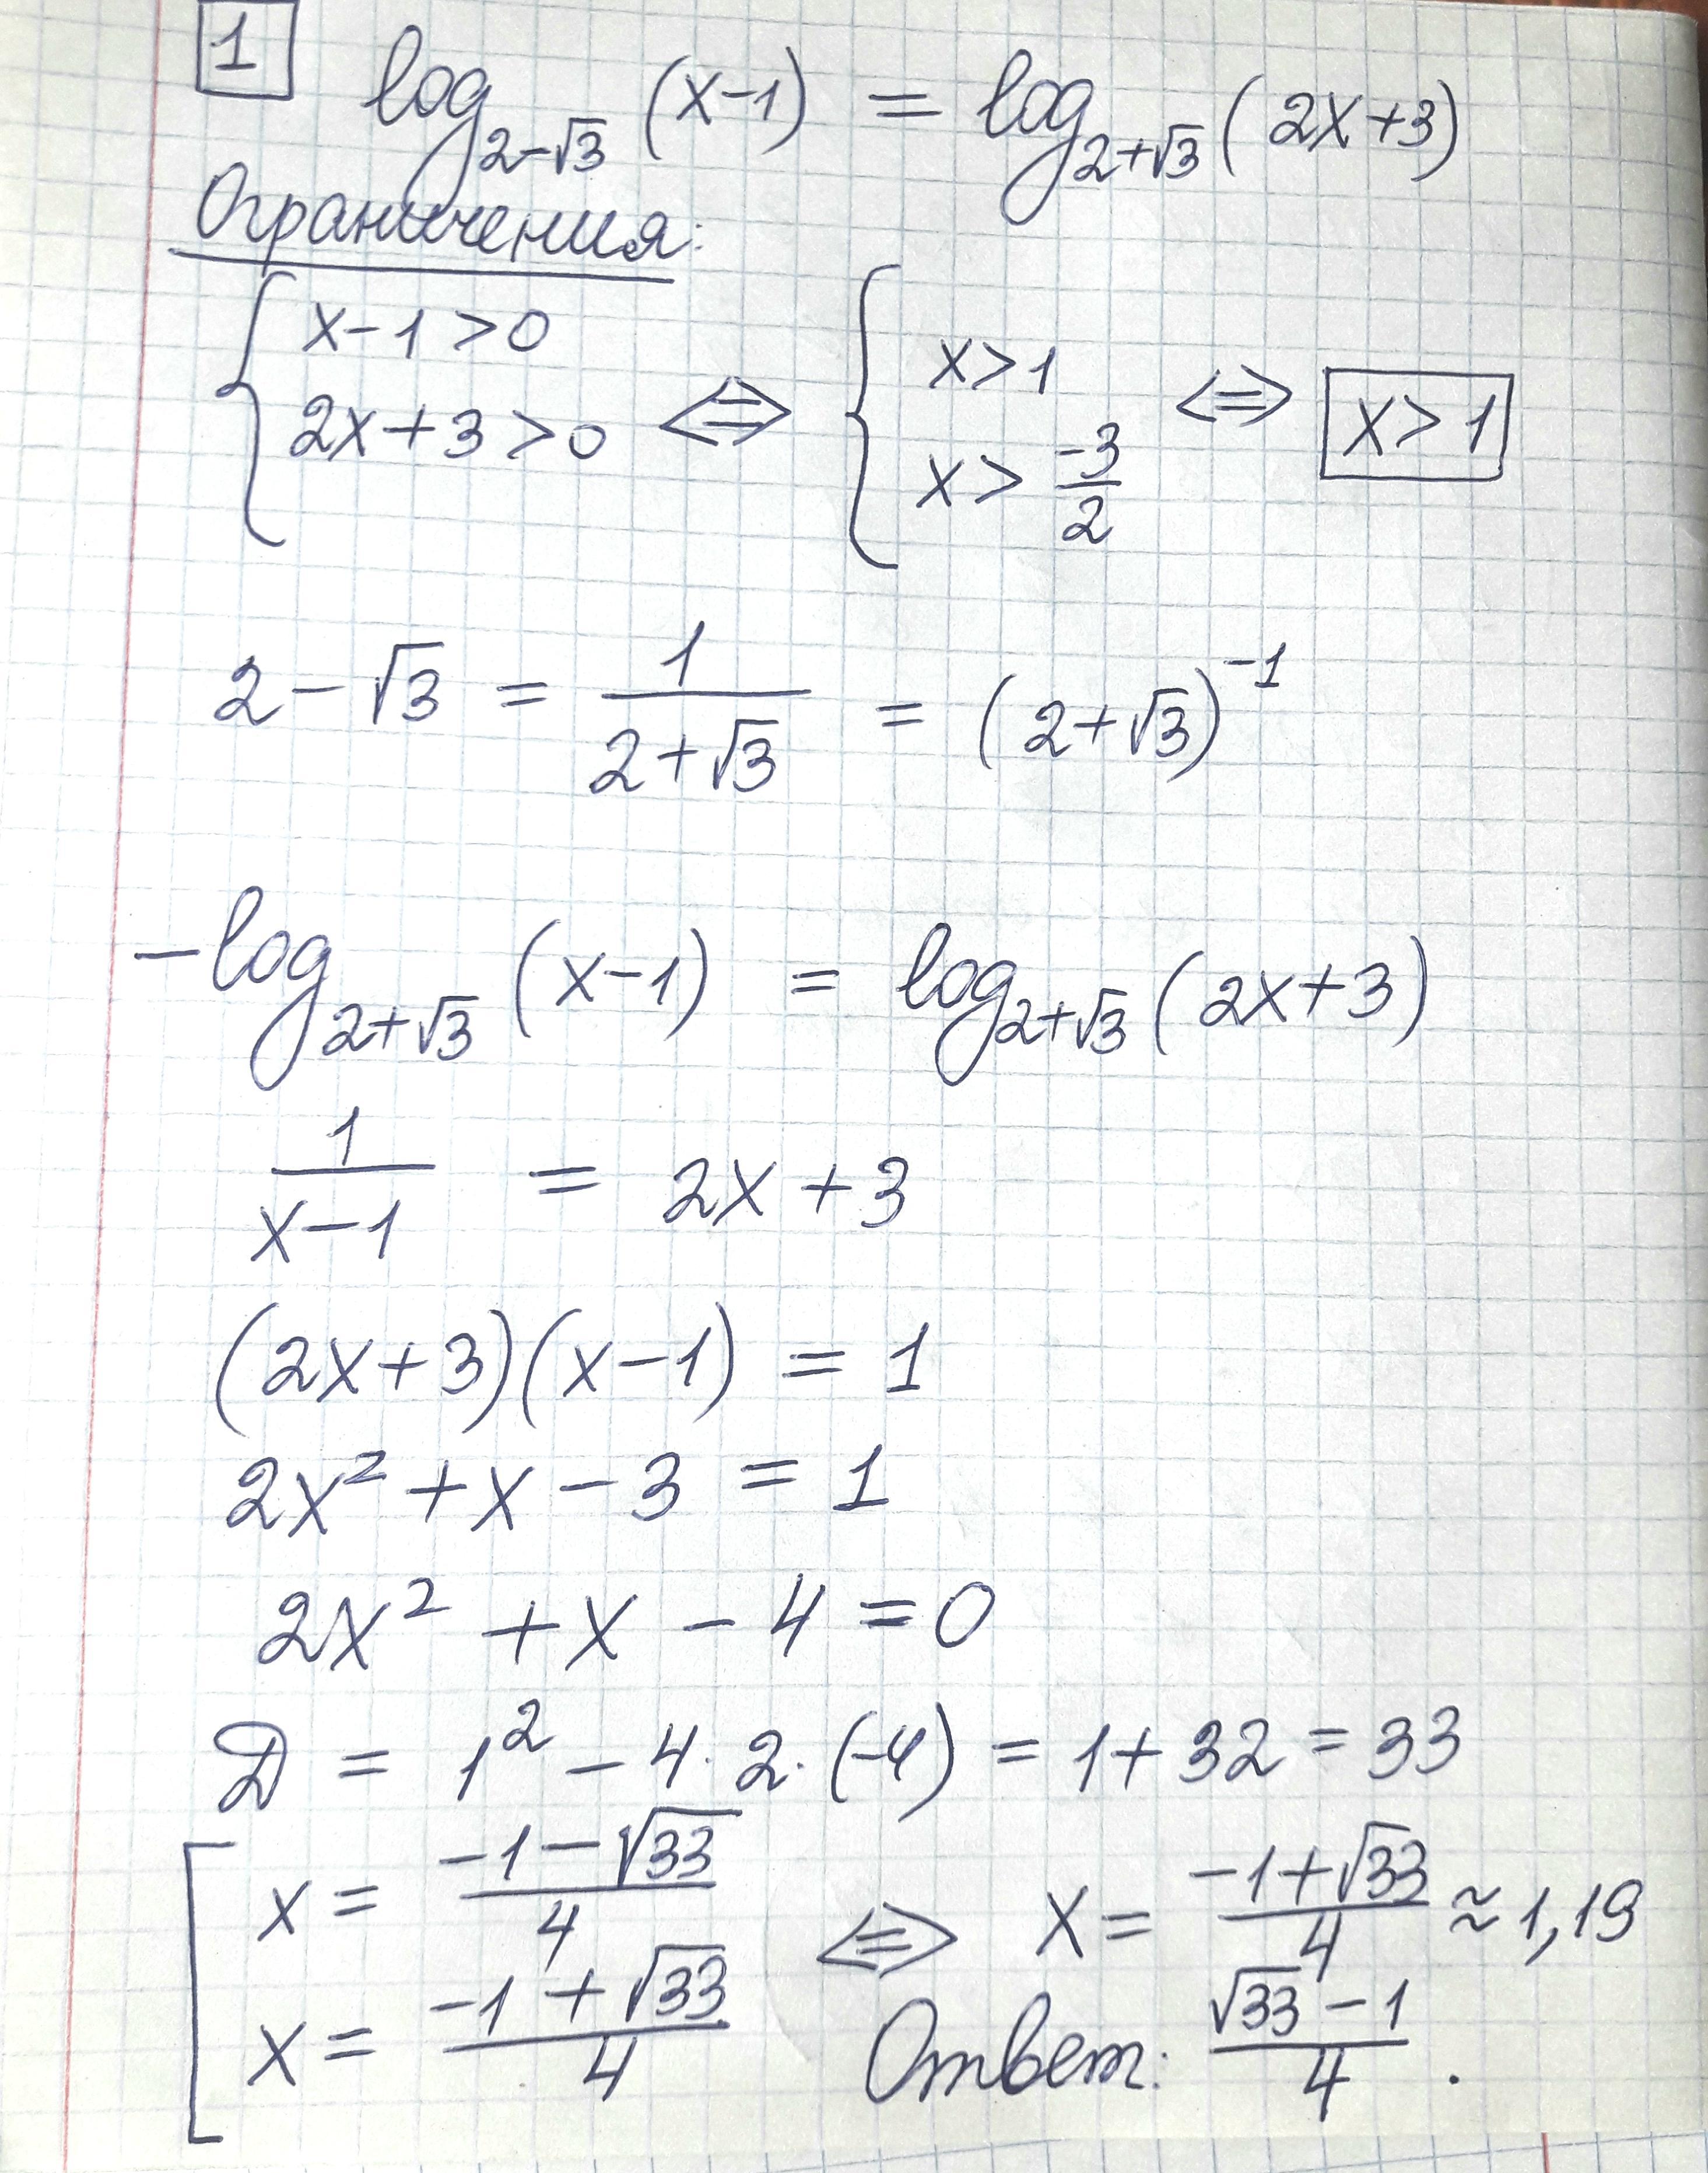 1 log_{2-√3} (x-1) = log_{2+√3} (2x+3)
Ограничения:
{ x-1>0 ; 2x+3>0 <=> { x>1 ; x> \frac{-3}{2} <=> x>1
2-√3 = \frac{1}{2+√3} = (2+√3)^{-1}
-log_{2+√3} (x-1) = log_{2+√3} (2x+3)
\frac{1}{x-1} = 2x+3
(2x+3)(x-1) = 1
2x² + x - 3 = 1
2x² + x - 4 = 0
D = 1² - 4·2·(-4) = 1+32 = 33
[ x = \frac{-1-√33}{4} ; x = \frac{-1+√33}{4} <=> x = \frac{-1+√33}{4} ≈ 1,19
Ответ: \frac{√33-1}{4}.